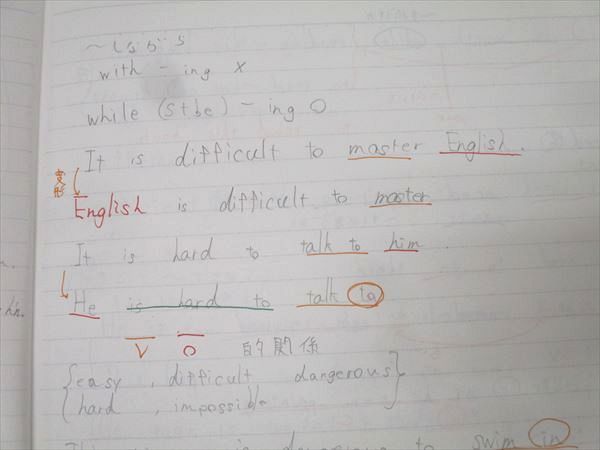 ～しながら
with - ing ×
while (S+be) - ing ○
It is difficult to master English.
変形
English is difficult to master
It is hard to talk to him.
He is hard to talk to
V O 的関係
{easy, difficult dangerous}
{hard, impossible
to swim in